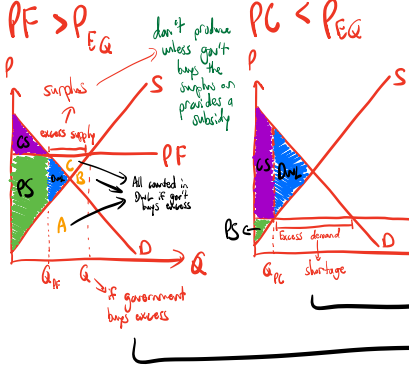 PF > PEQ
don't produce
unless gov't
buys the
surplus or
provides a
subsidy
PC < PEQ
P
surplus
excess supply
S
PF
CS
PS
DWL
C
B
A
All counted in
DWL if gov't
buys excess
D
QPF
Q
Q
if government
buys excess
P
S
CS
DWL
PS
Excess demand
D
QPC
shortage